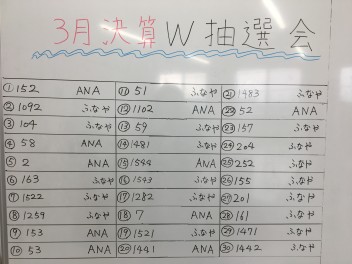 3月決算W抽選会
① 152 ANA ⑪ 51 ふなや ㉑ 1483 ふなや
② 1092 ふなや ⑫ 1102 ANA ㉒ 52 ANA
③ 104 ふなや ⑬ 59 ふなや ㉓ 157 ふなや
④ 58 ANA ⑭ 1481 ふなや ㉔ 204 ふなや
⑤ 2 ANA ⑮ 1544 ANA ㉕ 252 ふなや
⑥ 163 ふなや ⑯ 1543 ふなや ㉖ 155 ふなや
⑦ 1522 ふなや ⑰ 1282 ふなや ㉗ 201 ふなや
⑧ 1259 ふなや ⑱ 7 ANA ㉘ 161 ふなや
⑨ 153 ANA ⑲ 1521 ふなや ㉙ 1471 ふなや
⑩ 53 ANA ⑳ 1441 ANA ㉚ 1442 ふなや